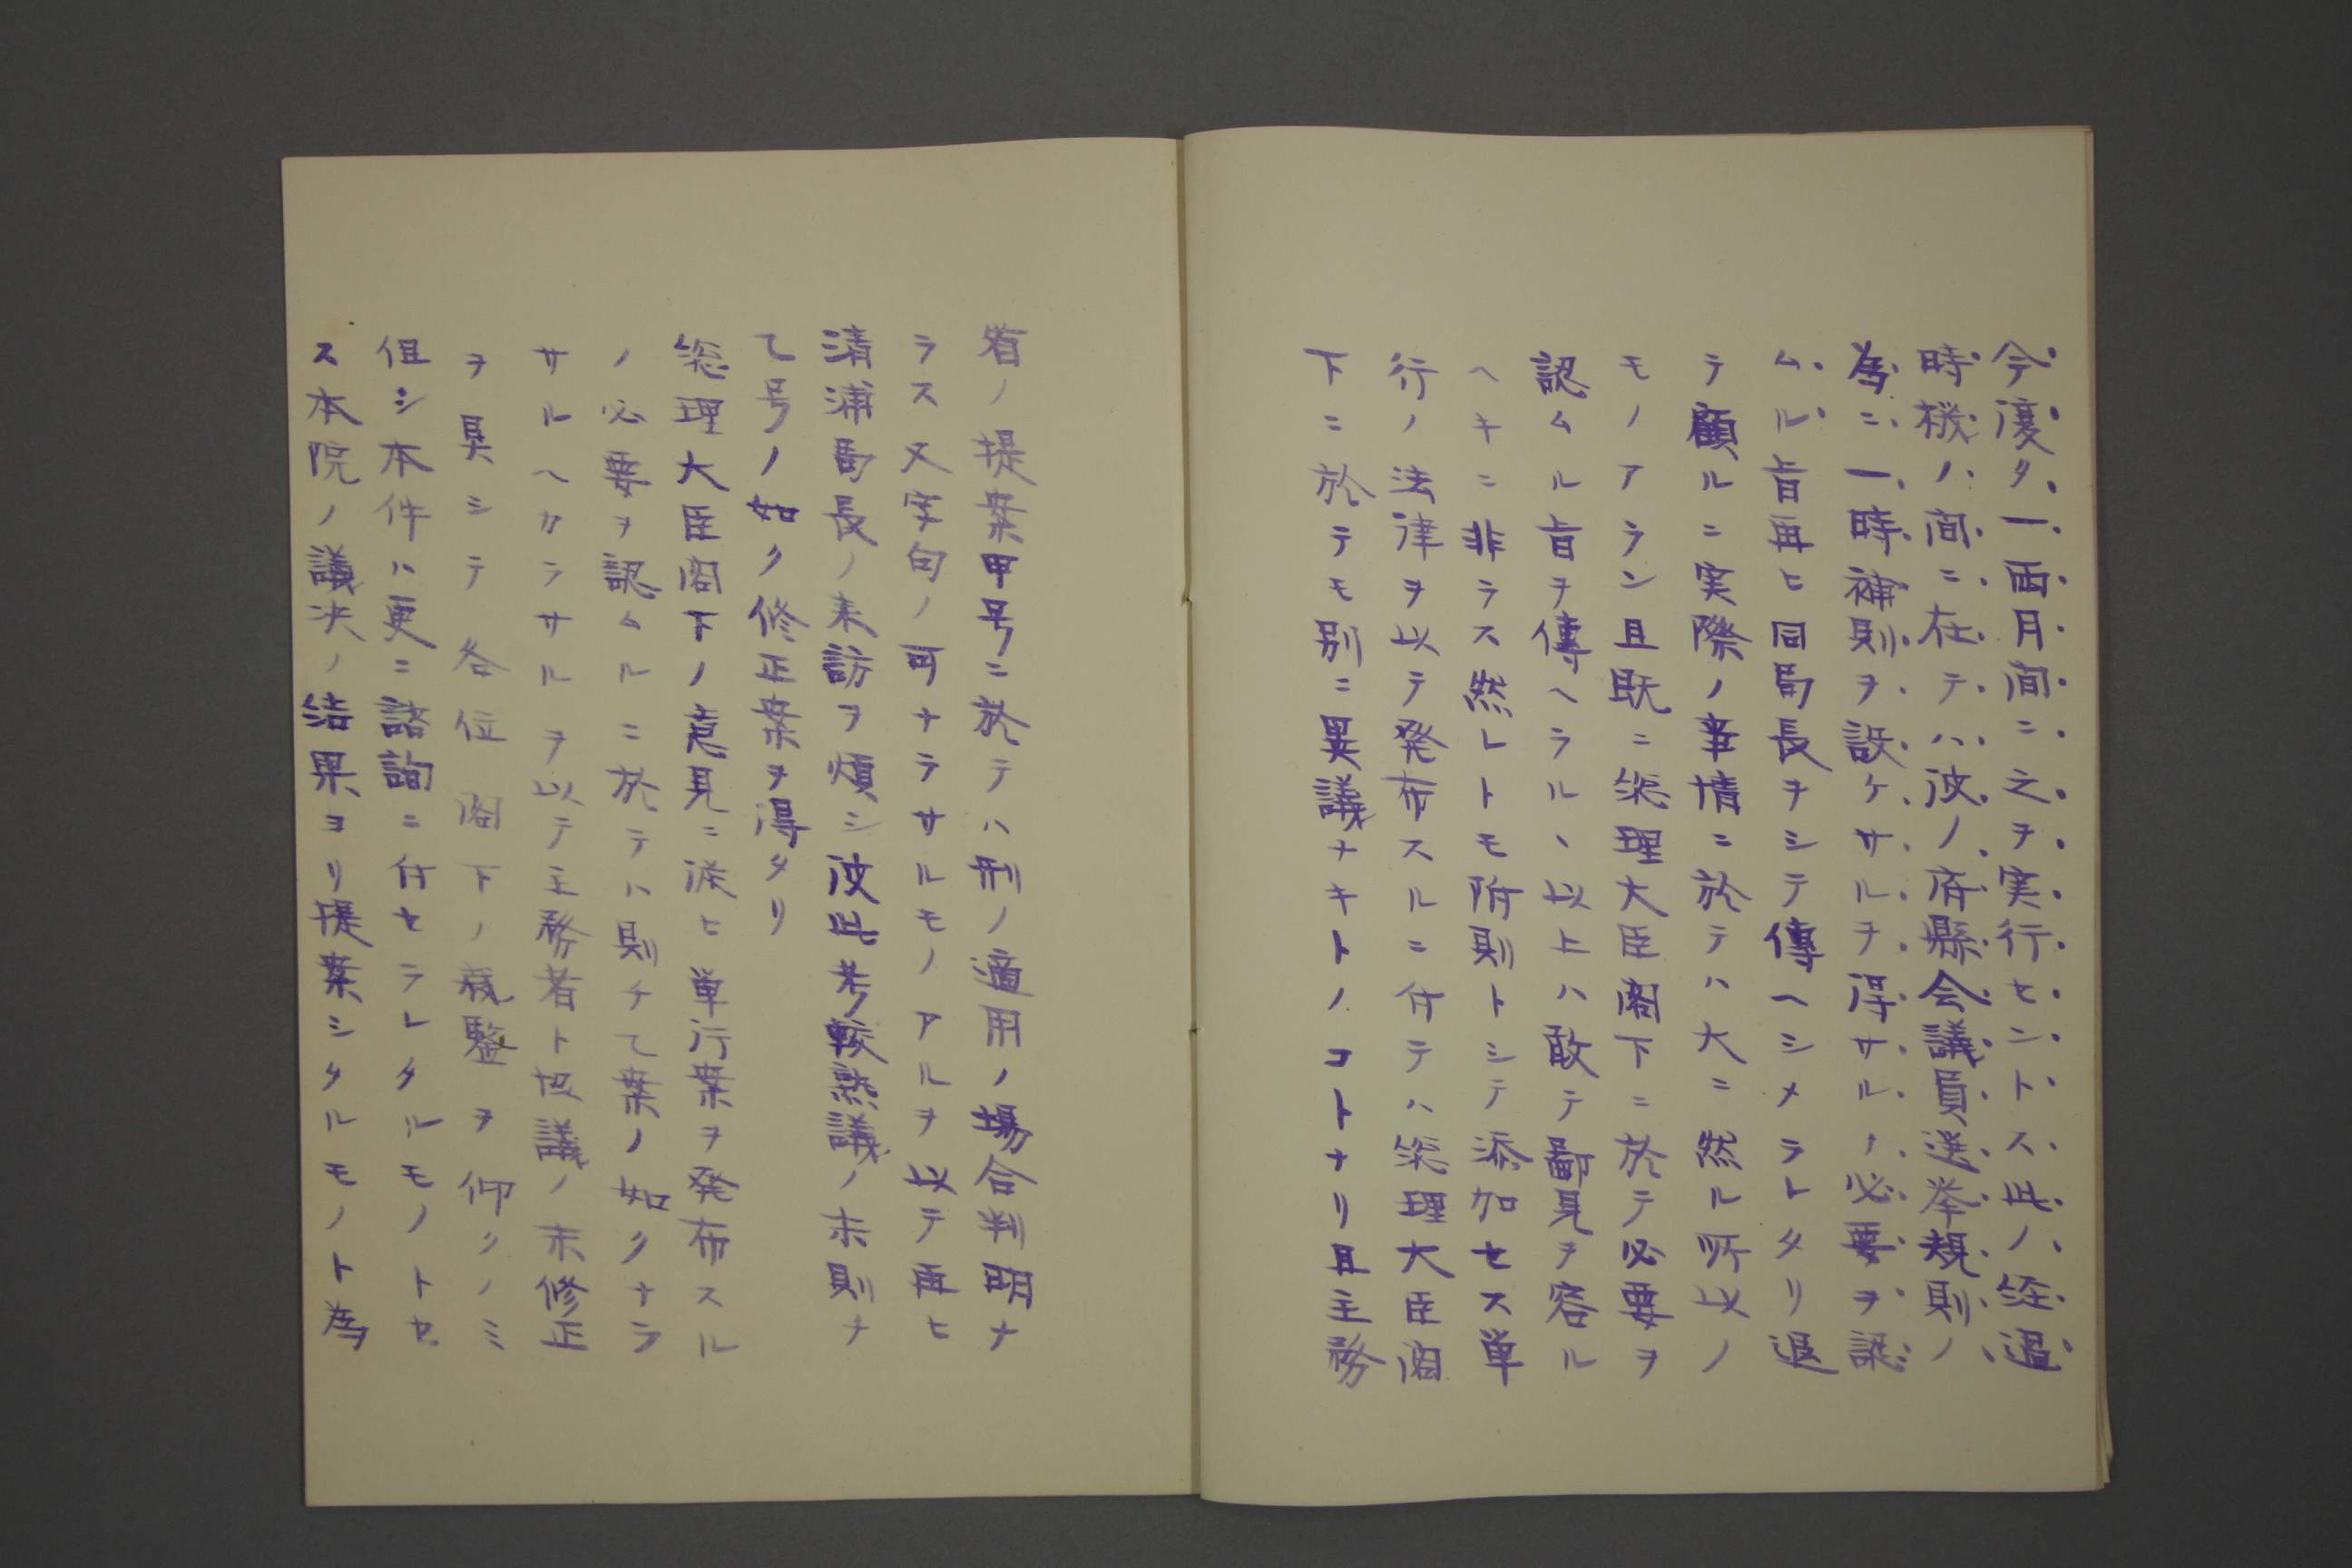 今度タ一両月間ニ之ヲ実行セントス此ノ経過
時機ノ間ニ在テハ彼ノ府縣会議員選挙規則ノ
為ニ一時補則ヲ設ケサルヲ得サルノ必要ヲ認
ムル旨再ヒ同局長ヲシテ傳ヘシメラレタリ退
テ顧ルニ実際ノ事情ニ於テハ大ニ然ル所以ノ
モノアラン且既ニ総理大臣閣下ニ於テ必要ヲ
認ムル旨ヲ傳ヘラルヽ以上ハ敢テ鄙見ヲ容ル
ヘキニ非ラス然レトモ附則トシテ添加セス単
行ノ法律ヲ以テ発布スルニ付テハ総理大臣閣
下ニ於テモ別ニ異議ナキトノコトナリ且主務
省ノ提案甲号ニ於テハ刑ノ適用ノ場合判明ナ
ラス又字句ノ可ナラサルモノアルヲ以テ再ヒ
清浦局長ノ来訪ヲ煩シ彼此考較熟議ノ末則チ
乙号ノ如ク修正案ヲ得タリ
総理大臣閣下ノ意見ニ従ヒ単行案ヲ発布スル
ノ必要ヲ認ムルニ於テハ則チ乙案ノ如クナラ
サルヘカラサルヲ以テ主務者ト协議ノ末修正
ヲ具シテ各位閣下ノ裁鑒ヲ仰クノミ
但シ本件ハ更ニ諮詢ニ付セラレタルモノトセ
ス本院ノ議決ノ結果ヨリ提案シタルモノト為